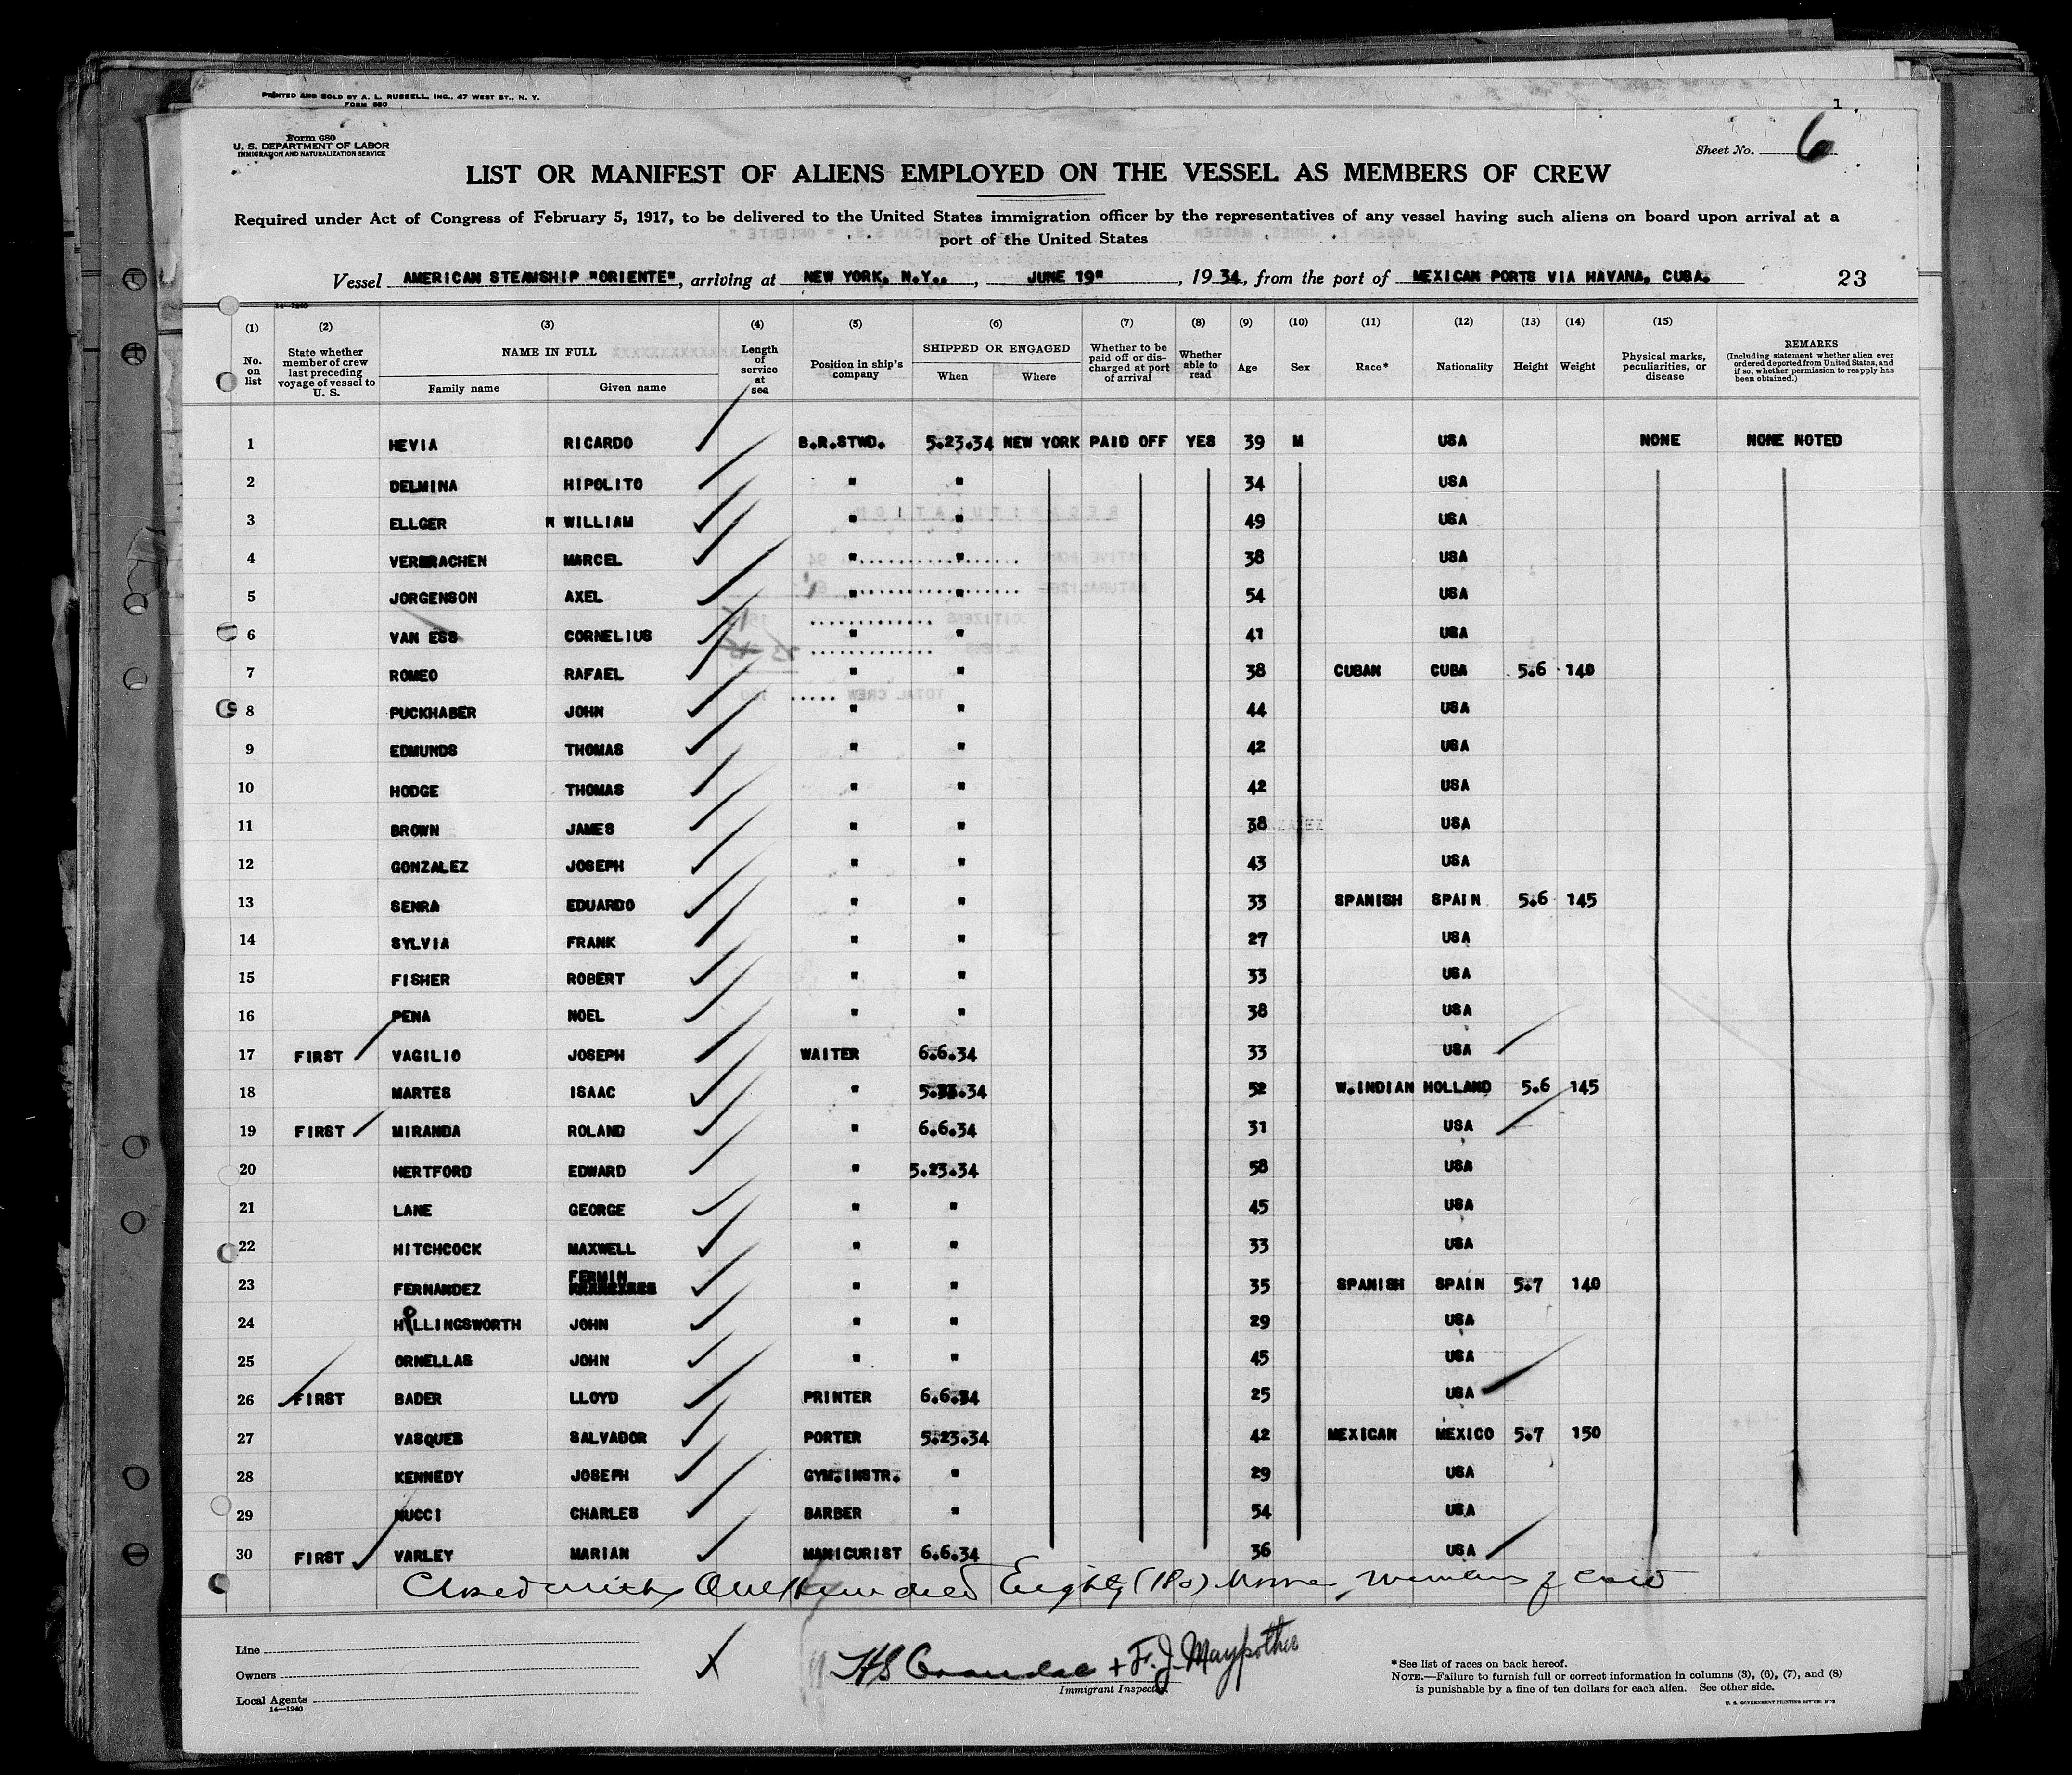 PRINTED AND SOLD BY A. L. RUSSELL, INC., 47 WEST ST., N. Y.
FORM 680
1
Form 680
U. S. DEPARTMENT OF LABOR
IMMIGRATION AND NATURALIZATION SERVICE
Sheet No. 6
LIST OR MANIFEST OF ALIENS EMPLOYED ON THE VESSEL AS MEMBERS OF CREW
Required under Act of Congress of February 5, 1917, to be delivered to the United States immigration officer by the representatives of any vessel having such aliens on board upon arrival at a
port of the United States
Vessel AMERICAN STEAMSHIP "ORIENTE", arriving at NEW YORK, N.Y., , JUNE 19" , 1934, from the port of MEXICAN PORTS VIA HAVANA, CUBA. 23
14—1240
(1) (2) (3) (4) (5) (6) (7) (8) (9) (10) (11) (12) (13) (14) (15)
No. on list
State whether member of crew last preceding voyage of vessel to U. S.
NAME IN FULL
Family name Given name
Length of service at sea
Position in ship's company
SHIPPED OR ENGAGED
When Where
Whether to be paid off or discharged at port of arrival
Whether able to read
Age
Sex
Race*
Nationality
Height
Weight
Physical marks, peculiarities, or disease
REMARKS
(Including statement whether alien ever ordered deported from United States, and if so, whether permission to reapply has been obtained.)
1 HEVIA RICARDO B.R.STWD. 5.23.34 NEW YORK PAID OFF YES 39 M USA NONE NONE NOTED
2 DELMINA HIPOLITO " " 34 USA
3 ELLGER W WILLIAM " " 49 USA
4 MARCEL " " 38 USA
5 JORGENSON AXEL " " 54 USA
6 VAN ESS CORNELIUS " " 41 USA
7 ROMEO RAFAEL " " 38 CUBAN CUBA 5.6 140
8 PUCKHABER JOHN " " 44 USA
9 EDMUNDS THOMAS " " 42 USA
10 HODGE THOMAS " " 42 USA
11 BROWN JAMES " " 38 USA
12 GONZALEZ JOSEPH " " 43 USA
13 SENRA EDUARDO " " 33 SPANISH SPAIN 5.6 145
14 SYLVIA FRANK " " 27 USA
15 FISHER ROBERT " " 33 USA
16 PENA NOEL " " 38 USA
17 FIRST VAGILIO JOSEPH WAITER 6.6.34 33 USA
18 MARTES ISAAC " 5.23.34 52 W.INDIAN HOLLAND 5.6 145
19 FIRST MIRANDA ROLAND " 6.6.34 31 USA
20 HERTFORD EDWARD " 5.23.34 58 USA
21 LANE GEORGE " " 45 USA
22 HITCHCOCK MAXWELL " " 33 USA
23 FERNANDEZ FERMIN " " 35 SPANISH SPAIN 5.7 140
24 HOLLINGSWORTH JOHN " " 29 USA
25 ORNELLAS JOHN " " 45 USA
26 FIRST BADER LLOYD PRINTER 6.6.34 25 USA
27 VASQUES SALVADOR PORTER 5.23.34 42 MEXICAN MEXICO 5.7 150
28 KENNEDY JOSEPH GYM.INSTR. " 29 USA
29 NUCCI CHARLES BARBER " 54 USA
30 FIRST VARLEY MARIAN MANICURIST 6.6.34 36 USA
Closed with One Hundred Eighty (180) members of crew
Line
Owners
Local Agents
14—1240
HS Crandal + F. J. Maypother
Immigrant Inspector.
*See list of races on back hereof.
NOTE.—Failure to furnish full or correct information in columns (3), (6), (7), and (8)
is punishable by a fine of ten dollars for each alien. See other side.